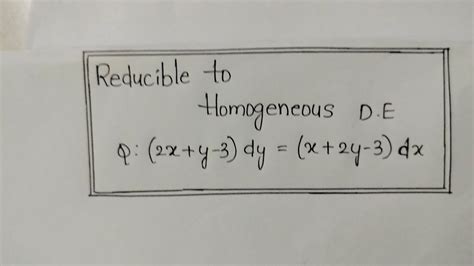 Reducible to
Homogeneous D.E
Q: (2x+y-3) dy = (x+2y-3) dx